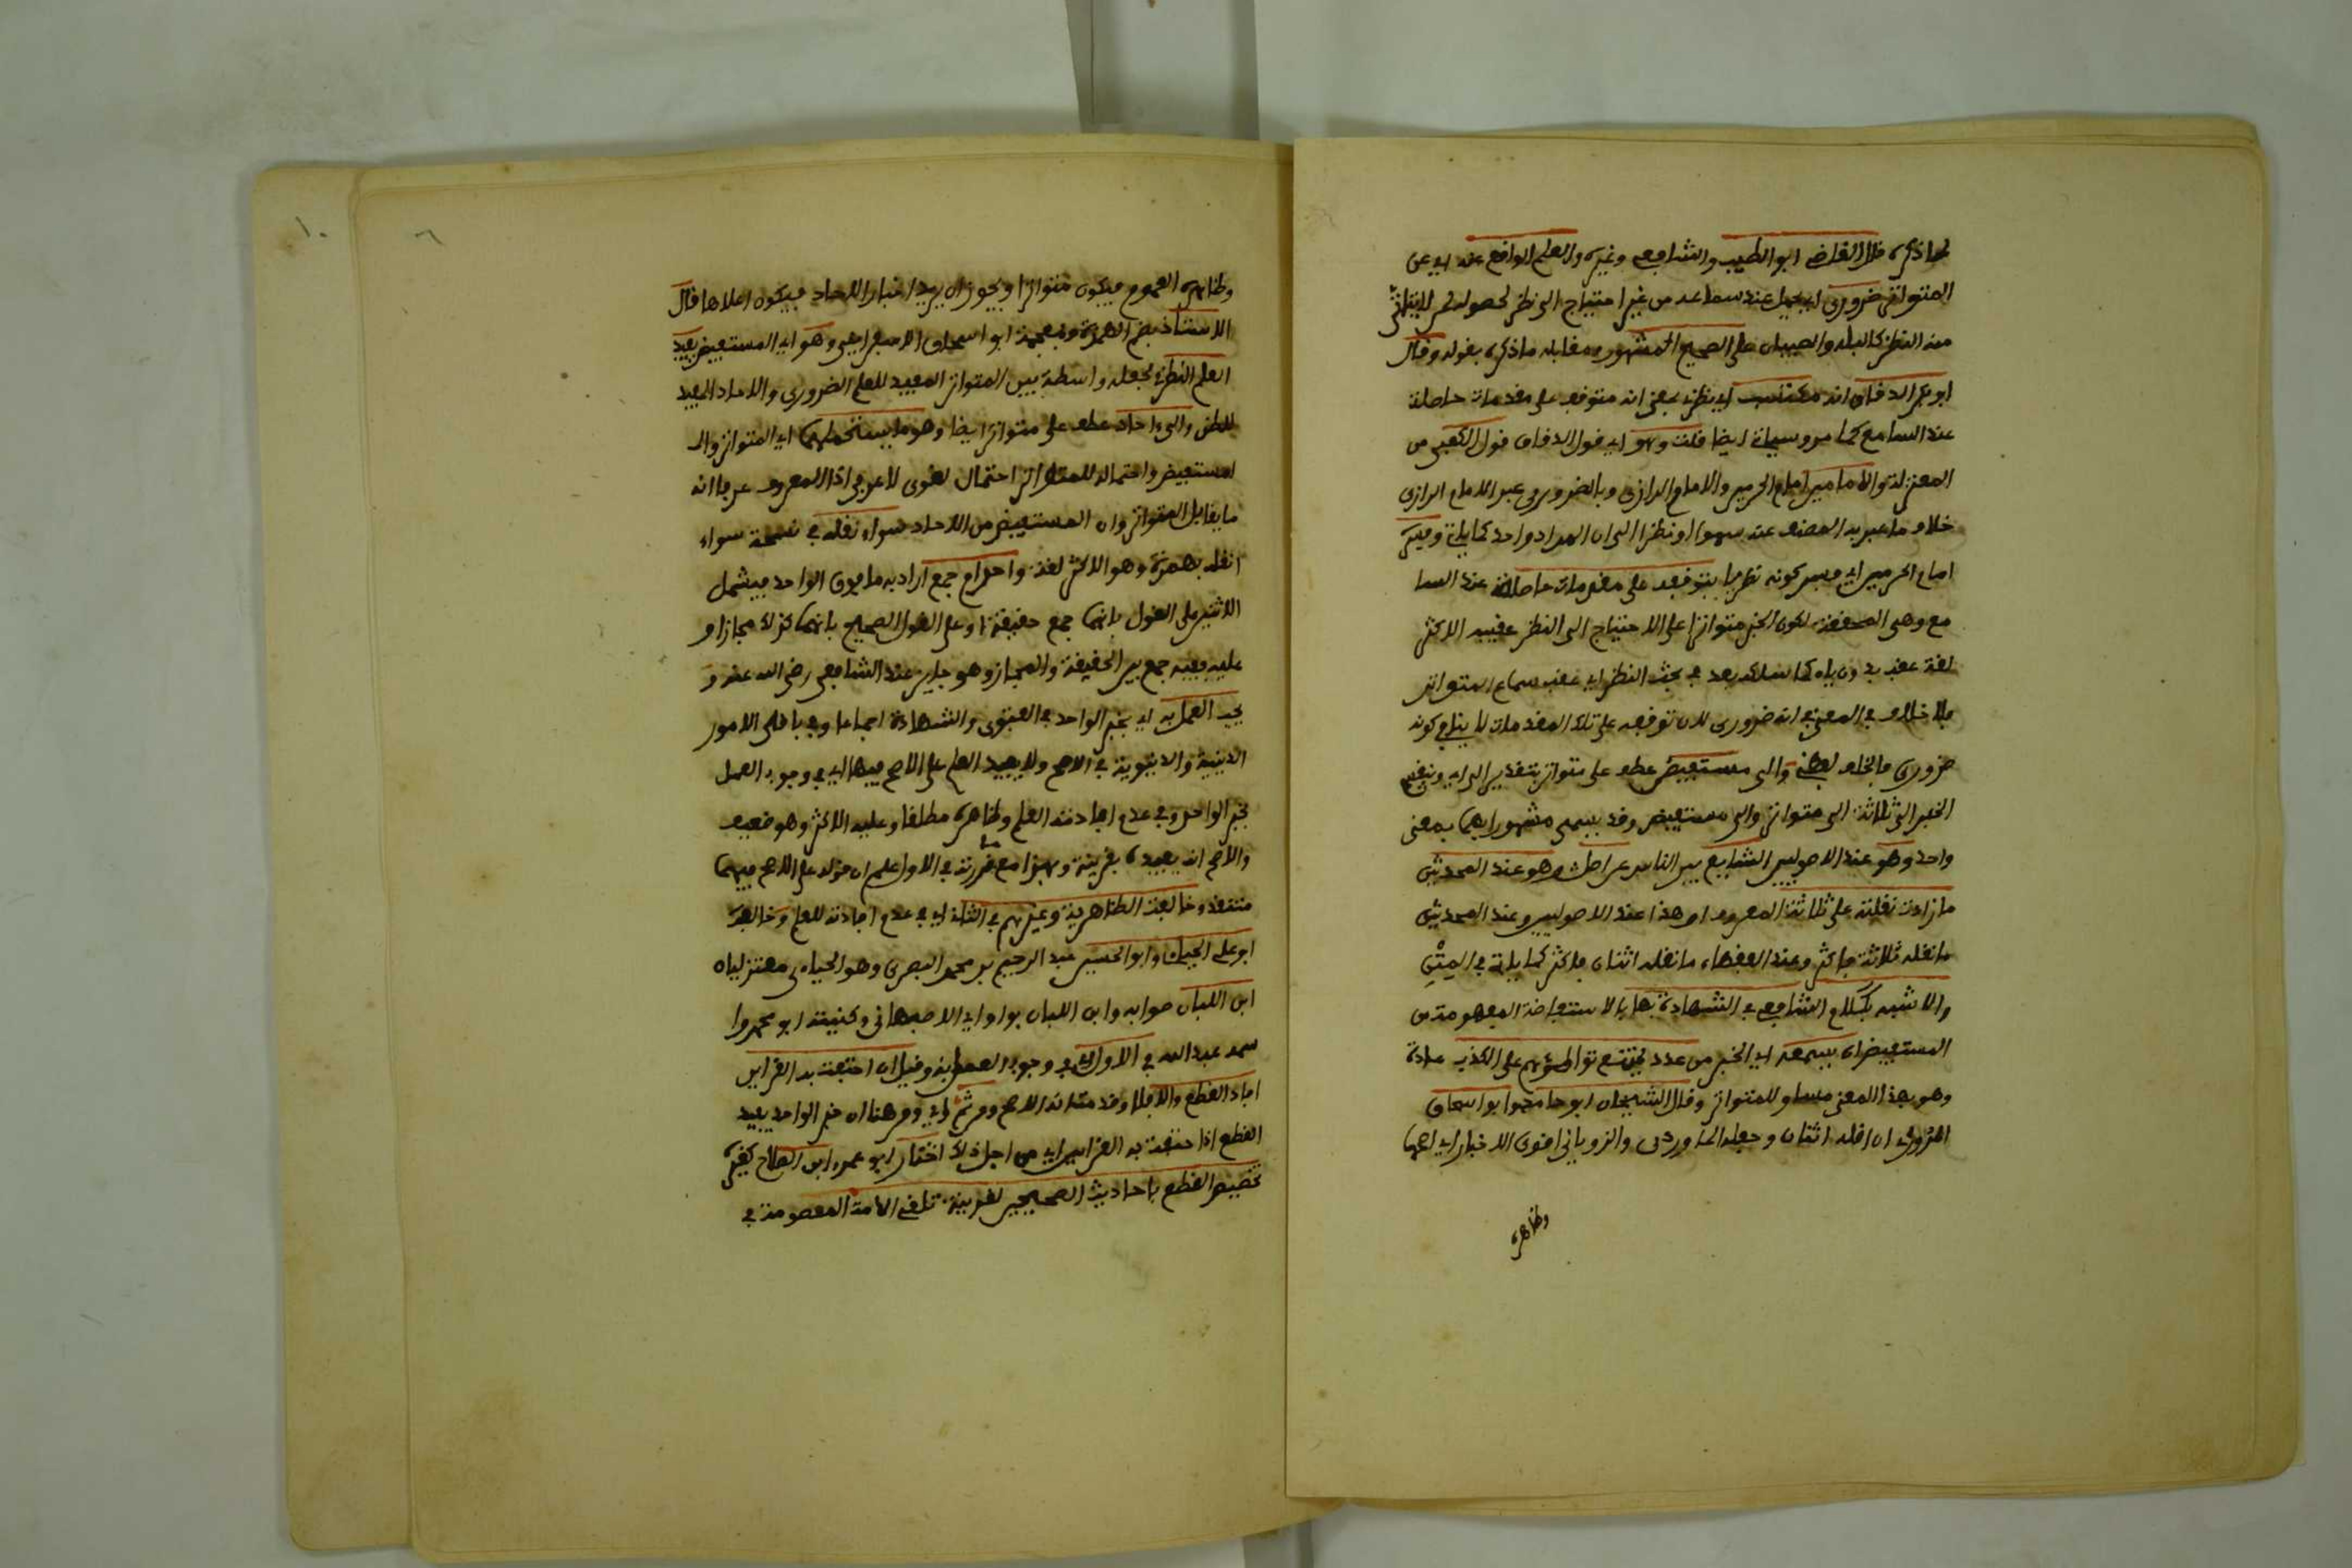 لما ذكره قال القاضي ابو الطيب والشافعي وغيره والعلم الواقع عنه اي عن
المتواتر ضروري اي يحصل عند سماعه من غير احتياج الى نظر لحصوله لمن لا يتاتى
منه النظر كالبله والصبيان على الصحيح المشهور ومقابله ما ذكره بقوله وقال
ابو بكر الدقاق انه مكتسب اي نظري بمعنى انه متوقف على مقدمات حاصلة
عند السامع كما مر وسياتي ايضا قلت وهو اي قول الدقاق قول الكعبي من
المعتزلة والامامين امام الحرمين والامام الرازي وبالضروري عبر الامام الرازي
خلاف ما عبر به المصنف عنه سهوا او نظرا الى ان المراد واحد كما ياتي وفسر
امام الحرمين اي فسر كونه نظريا بتوقفه على مقدمات حاصلة عند السا
مع وهي المحققة لكون الخبر متواترا على الاحتياج الى النظر عقيبه الاكثر
لغة عقب بدون ياء كما سلكه بعد في بحث النظر اي عقب سماع المتواتر
فلا خلاف في المعنى في انه ضروري لان توقفه على تلك المقدمات لا ينافي كونه
ضروري فالخلف لفظي والى مستفيض عطف على متواتر بتقدير الى اي وينقسم
الخبر الى ثلاثة الى متواتر والى مستفيض وقد يسمى مشهورا فهما بمعنى
واحد وهو عند الاصوليين الشايع بين الناس عن اصل وهو عند المحدثين
ما زادت نقلته على ثلاثة المعروف ان هذا عند الاصوليين وعند المحدثين
ما نقله ثلاثة فاكثر وعند الفقهاء ما نقله اثنان فاكثر كما ياتي في المتن
والاشبه بكلام الشافعي في الشهادة بها بالاستفاضة المفهومة من
المستفيض ان يسمعه اي الخبر من عدد يمتنع تواطؤهم على الكذب عادة
وهو بهذا المعنى مساو للمتواتر وقال الشيخان ابو حامد وابو اسحاق
المروزي ان اقله اثنان وجعله الماوردي والروياني اقوى الاخبار اي اعمها
وظاهره
٦
١٠
وظاهره العموم فيكون متواترا ويجوز ان يريد اخبار الاحاد فيكون اعلاها قال
الاستاذ بضم الهمزة وبمعجمة ابو اسحاق الاسفراييني وهو اي المستفيض يفيد
العلم النظري فجعله واسطة بين المتواتر المفيد للعلم الضروري والاحاد المفيد
للظن والى احاد عطف على متواتر ايضا وهو ما سواهما اي المتواتر وال
مستفيض واحتماله للمتواتر احتمال لغوي لا عرفي اذ المعروف عرفا انه
ما يقابل المتواتر وان المستفيض من الاحاد سواء نقله في نسخة سواء
انقله بهمزة وهو الاكثر لغة واحد ام جمع اراد به ما فوق الواحد فيشمل
الاثنين على القول بانهما جمع حقيقة او على القول الصحيح بانهما كذلك مجازا و
عليه ففيه جمع بين الحقيقة والمجاز وهو جايز عند الشافعي رضى الله عنه و
يجب العمل به اي بخبر الواحد في الفتوى والشهادة اجماعا وفي باقي الامور
الدينية والدنيوية في الاصح ولا يفيد العلم على الاصح فيهما اي في وجوب العمل
بخبر الواحد وفي عدم افادته العلم وظاهره مطلقا وعليه الاكثر وهو ضعيف
والاصح انه يفيده بقرينة وبهذا مع ما قررته في الاول علم ان قوله على الاصح فيهما
منتقد وخالفت الظاهرية وغيرهم في الثاني اي في عدم افادته للعلم وخالف
ابو علي الجبائي وابو الحسين عبد الرحيم بن محمد البصري وهو الجبائي معتزليان
ابن اللبان صوابه وابن اللبان بواو اي الاصبهاني وكنيته ابو محمد وا
سمه عبد الله في الاول اي في وجوب العمل به وقيل ان احتفت به القراين
افاد القطع والا فلا وقد مر انه الاصح ومن ثم اي ومن هنا ان خبر الواحد يفيد
القطع اذا احتفت به القراين اي من اجل ذلك اختار ابو عمرو ابن الصلاح كغيره
تخصيص القطع باحاديث الصحيحين لقرينة تلقي الامة المعصومة في